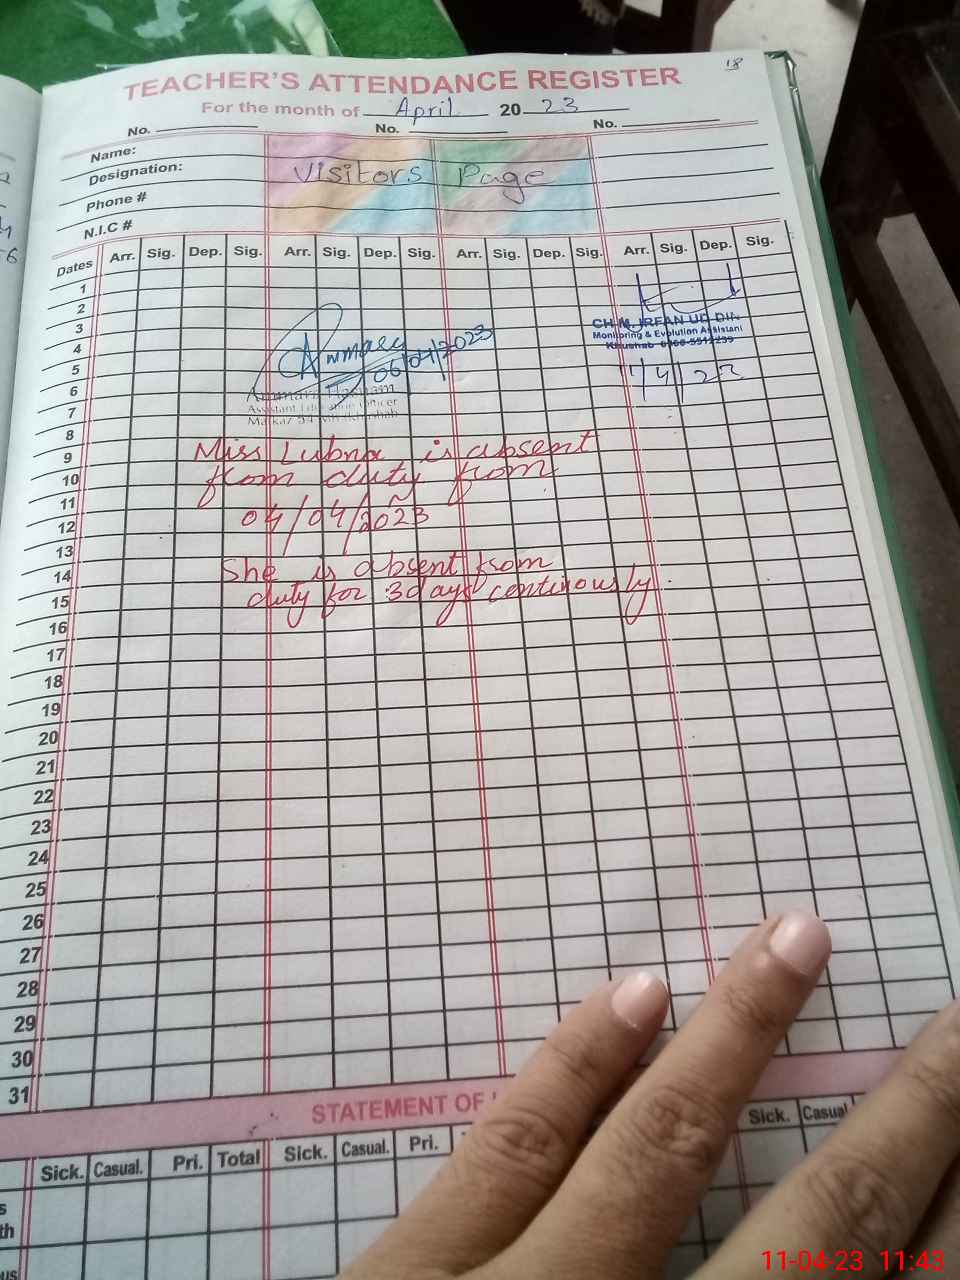 18
TEACHER'S ATTENDANCE REGISTER
For the month of April 20 23
No. No. No.
Name:
Designation:
Phone #
N.I.C #
Visitors Page
Dates Arr. Sig. Dep. Sig. Arr. Sig. Dep. Sig. Arr. Sig. Dep. Sig. Arr. Sig. Dep. Sig.
1
2
3
4
5
6
7
8
9
10
11
12
13
14
15
16
17
18
19
20
21
22
23
24
25
26
27
28
29
30
31
CH.M. IRFAN UD DIN
Monitoring & Evolution Assistant
Khushab
06/04/2023
Assistant Education Officer
Miss Lubna is absent
from duty from
04/04/2023
She is absent from
duty for 3 days continously
STATEMENT OF
Sick. Casual. Pri. Total Sick. Casual. Pri. Sick. Casual
11-04-23 11:43